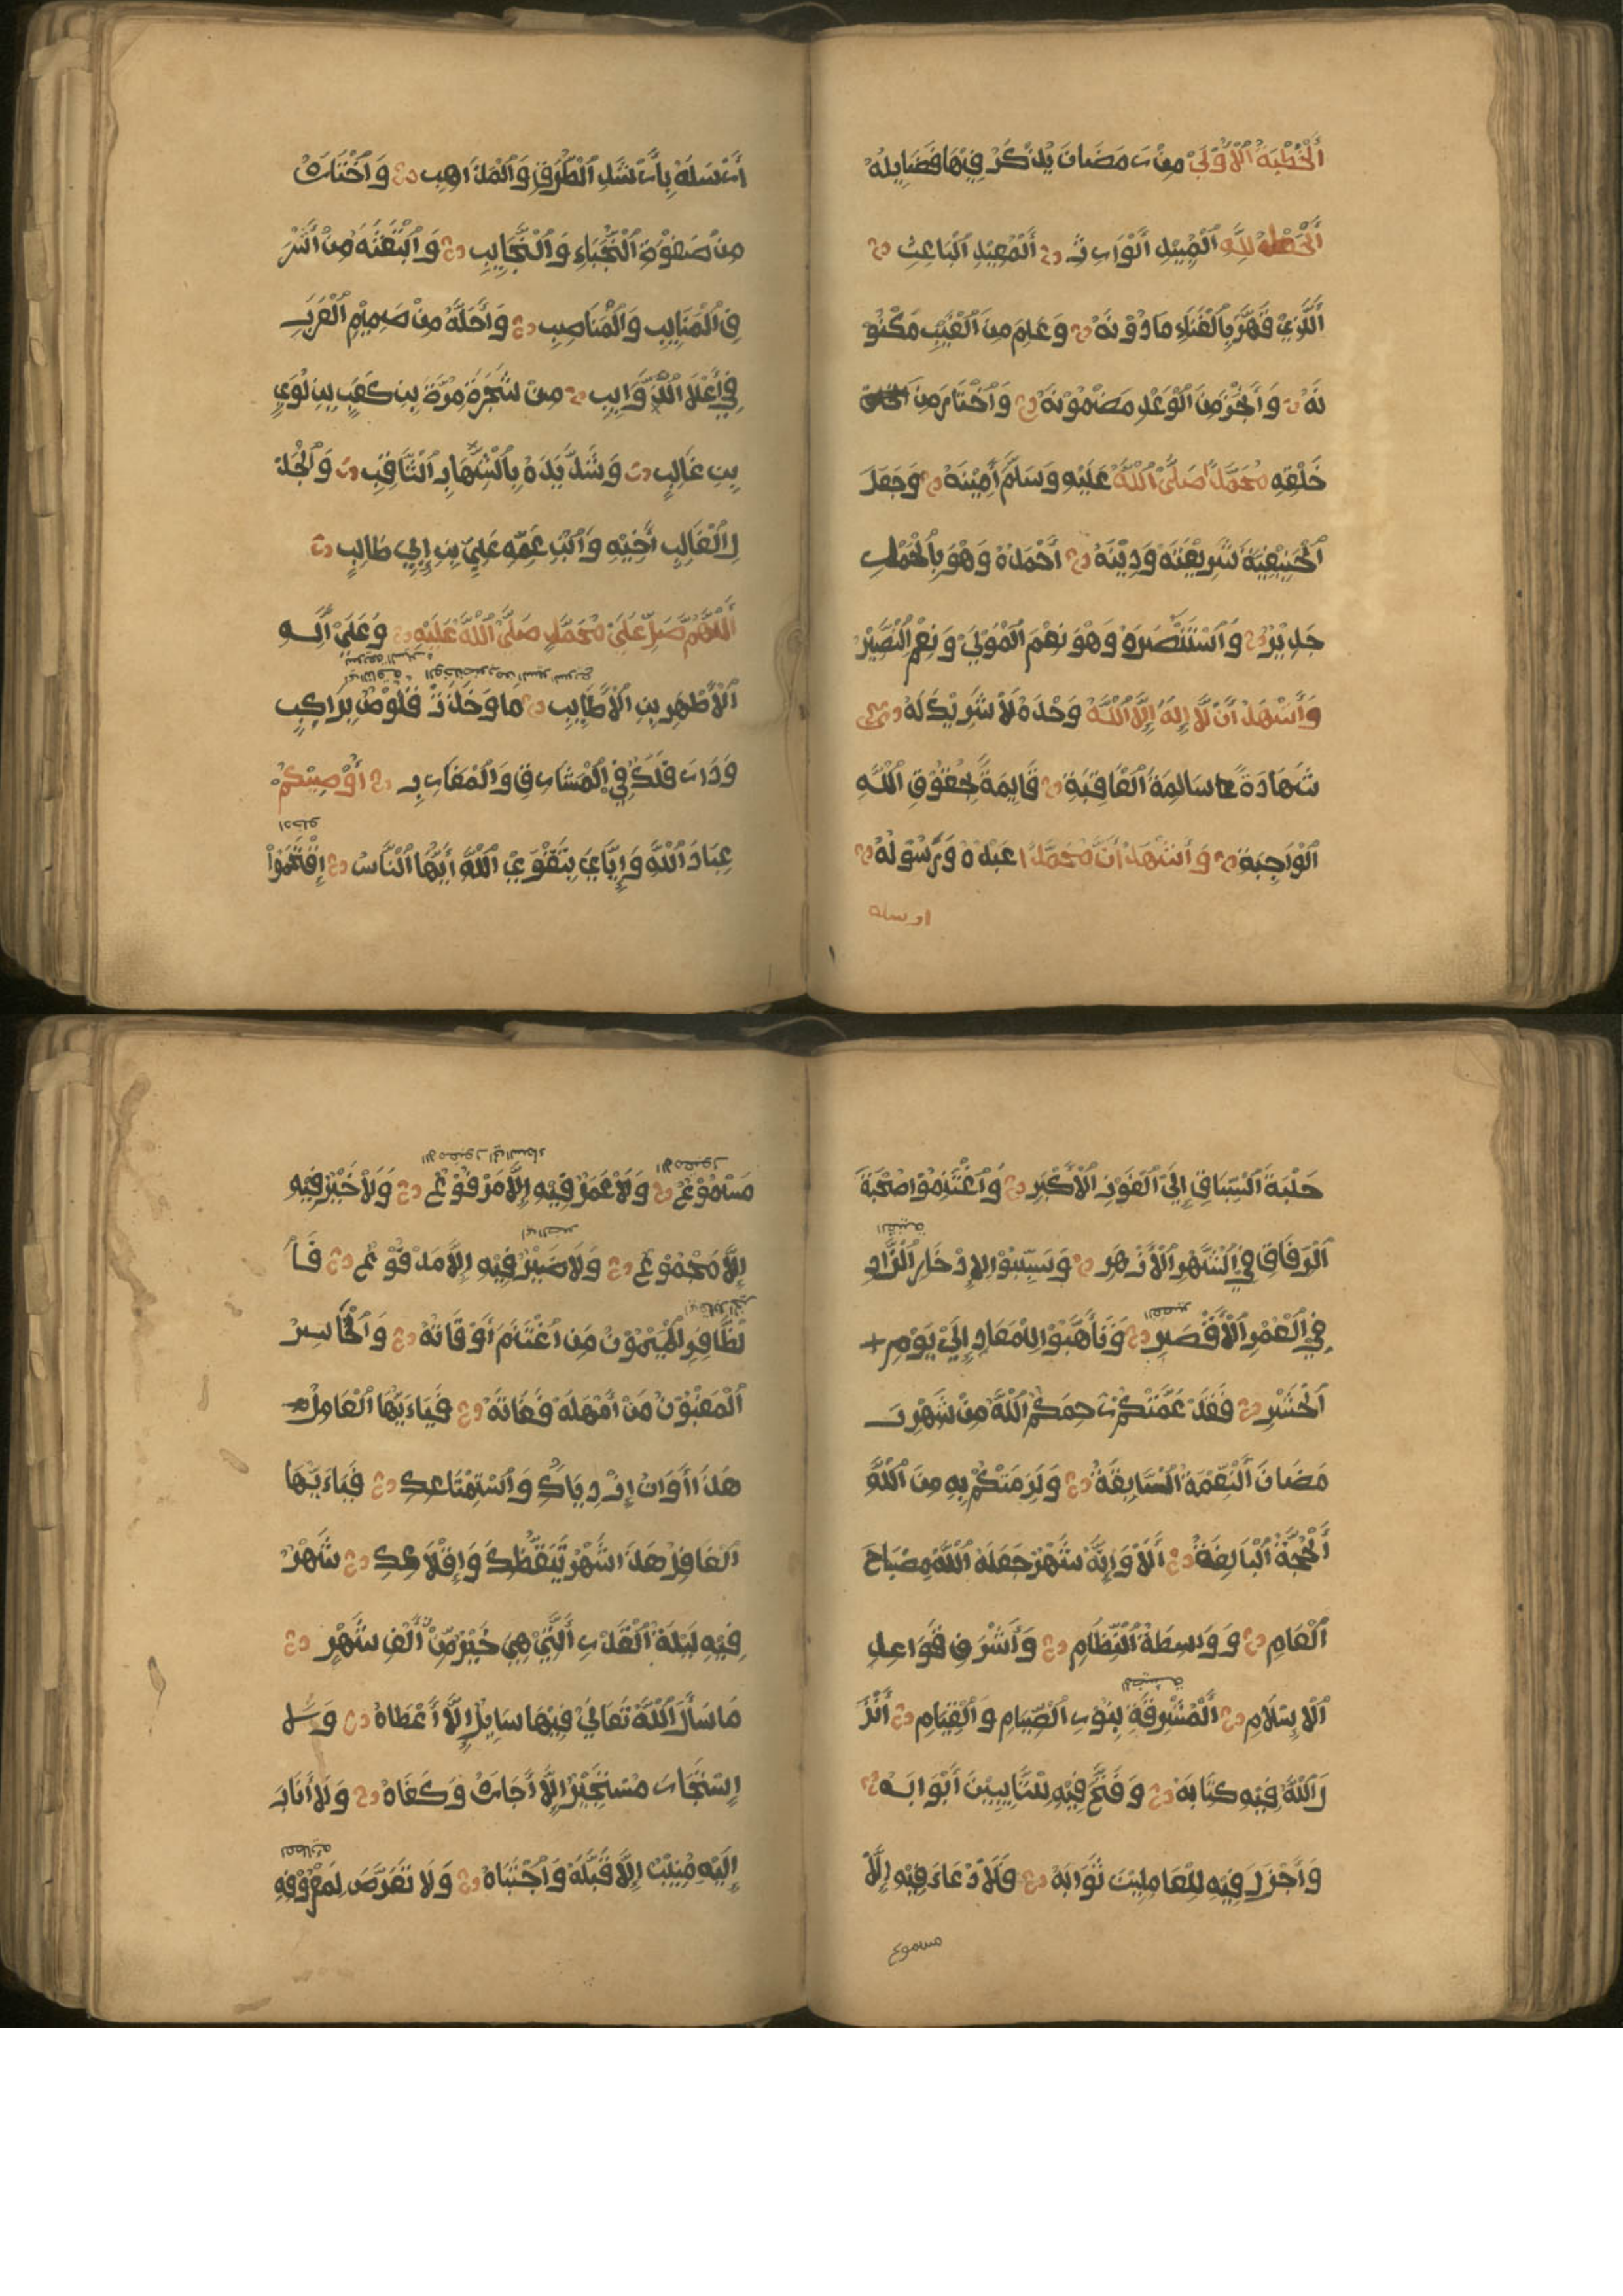 اَلْخُطْبَةُ الْاُوْلَىٰ مِنْ رَمَضَانَ يُذْكَرُ فِيْهَا فَضَايِلُهُ
اَلْحَمْدُ لِلّٰهِ الْمُبِيْدِ الْوَارِثْ اَلْمُعِيْدِ الْبَاعِثِ
الَّذِيْ قَهَّرَ بِالْفَنَاءِ مَا دُوْنَهُ وَعَلِمَ مِنَ الْغَيْبِ مَكْنُوْ
نَهُ وَاَنْجَزَ مِنَ الْوَعْدِ مَضْمُوْنَهُ وَاخْتَارَ مِنَ
خَلْقِهِ مُحَمَّدًا صَلَّى اللّٰهُ عَلَيْهِ وَسَلَّمَ اَمِيْنَهُ وَجَعَلَ
الْحَنِيْفِيَّةَ شَرِيْعَتَهُ وَدِيْنَهُ اَحْمَدُهُ وَهْوَ بِالْحَمْدِ
جَدِيْرٌ وَاَسْتَنْصِرُهُ وَهْوَ نِعْمَ الْمَوْلَىٰ وَنِعْمَ النَّصِيْرُ
وَاَشْهَدُ اَنْ لَا اِلٰهَ اِلَّا اللّٰهُ وَحْدَهُ لَا شَرِيْكَ لَهُ
شَهَادَةً سَالِمَةَ الْعَاقِبَةِ قَايِمَةً بِحُقُوْقِ اللّٰهِ
الْوَاجِبَةِ وَاَشْهَدُ اَنَّ مُحَمَّدًا عَبْدُهُ وَرَسُوْلُهُ
ارسله
اَرْسَلَهُ بِاَرْشَدِ الطُّرُقِ وَالْمَذَاهِبِ وَاخْتَارَهُ
مِنْ صَفْوَةِ النُّجَبَاءِ وَالنَّجَايِبِ وَابْتَعَثَهُ مِنْ اَشْرَ
فِ الْمَنَايِبِ وَالْمَنَاصِبِ وَاَحَلَّهُ مِنْ صَمِيْمِ الْعَرَبِ
فِيْ اَعْلَا الذَّوَايِبِ مِنْ شَجَرَةِ مُرَّةَ بِنِ كَعَبِ بِنِ لُوَيِ
بِنِ غَالِبٍ وَشَدَّ يَدَهُ بِالشِّهَابِ الثَّاقِبِ وَالْجُدَ
لِ الْغَالِبِ اَخِيْهِ وَابْنِ عَمِّهِ عَلِيِّ بِنِ اَبِيْ طَالِبٍ
اَللّٰهُمَّ صَلِّ عَلَىٰ مُحَمَّدٍ صَلَّى اللّٰهُ عَلَيْهِ وَعَلَىٰ اٰلِهِ
الْاَطْهَرِيْنِ الْاَطَايِبِ مَا وَخَدَتْ قَلُوْصٌ بِرَاكِبٍ
وَدَارَ فَلَكٌ فِي الْمَشَارِقِ وَالْمَغَارِبِ اُوْصِيْكُمْ
ادخلو
عِبَادَ اللّٰهِ وَاِيَّايَ بِتَقْوَى اللّٰهِ اَيُّهَا النَّاسُ اِقْتَحِمُوْا
حَلْبَةَ السِّبَاقِ اِلَى الْفَوْزِ الْاَكْبَرِ وَاغْتَنِمُوْا صُحْبَةَ
الرِّفَاقِ فِي الشَّهْرِ الْاَزْهَرِ وَتَسَبَّبُوْا لِاِدْخَارِ الزَّادِ
القصير
فِي الْعُمْرِ الْاَقْصَرِ وَتَاَهَّبُوْا لِلْمَعَادِ اِلَىٰ يَوْمِ
الْحَشْرِ فَقَدْ عَمَّتْكُمْ رَحِمَكُمُ اللّٰهُ مِنْ شَهْرِ رَ
مَضَانَ النِّعْمَةُ السَّابِغَةُ وَلَزِمَتْكُمْ بِهِ مِنَ اللّٰهِ
اَلْحُجَّةُ الْبَالِغَةُ اَلَا وَاِنَّهُ شَهْرٌ جَعَلَهُ اللّٰهُ مِصْبَاحَ
الْعَامِ وَوَاسِطَةَ النِّظَامِ وَاَشْرَفَ قَوَاعِدِ
الْاِسْلَامِ اَلْمُشْرِقَةِ بِنُوْرِ الصِّيَامِ وَالْقِيَامِ اَنْزَ
لَ اللّٰهُ فِيْهِ كِتَابَهُ وَفَتَحَ فِيْهِ لِلتَّايِبِيْنَ اَبْوَابَهُ
وَاَجْزَلَ فِيْهِ لِلْعَامِلِيْنَ ثَوَابَهُ فَلَا دُعَاءَ فِيْهِ اِلَّا
مسموع
مَسْمُوْعٌ وَلَا عَمَلٌ فِيْهِ اِلَّا مَرْفُوْعٌ وَلَا خَيْرٌ فِيْهِ
اِلَّا مَجْمُوْعٌ وَلَا ضَيْرٌ فِيْهِ اِلَّا مَدْفُوْعٌ فَا
لظَّافِرُ الْمَيْمُوْنُ مَنِ اغْتَنَمَ اَوْقَاتَهُ وَالْخَاسِرُ
الْمَغْبُوْنُ مَنْ اَهْمَلَهُ فَفَاتَهُ فَيَاءَيُّهَا الْعَامِلُ
هَذَا اَوَانُ اِزْدِيَادِكَ وَاسْتِمْتَاعِكَ فَيَاءَيُّهَا
الْغَافِلُ هَذَا شَهْرُ تَيَقُّظِكَ وَاِقْلَاعِكَ شَهْرٌ
فِيْهِ لَيْلَةُ الْقَدْرِ الَّتِيْ هِيَ خَيْرٌ مِّنْ اَلْفِ شَهْرٍ
مَا سَاَلَ اللّٰهَ تَعَالَىٰ فِيْهَا سَايِلٌ اِلَّا اَعْطَاهُ وَلَا
اِسْتَجَارَ مُسْتَجِيْرٌ اِلَّا اَجَارَهُ وَكَفَاهُ وَلَا اَنَابَ
اِلَيْهِ مُنِيْبٌ اِلَّا قَبِلَهُ وَاجْتَبَاهُ وَلَا تَعَرَّضَ لِمَعْرُوْفِهِ